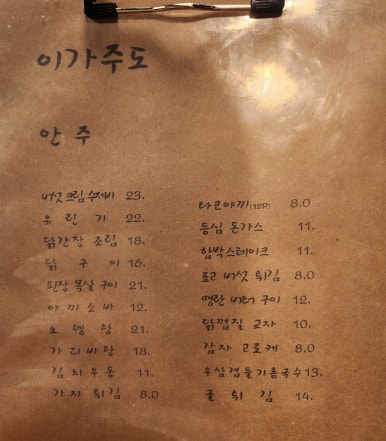 이가주도
안주
버섯크림 수제비 23.
유린기 22.
닭간장 조림 18.
닭구이 16.
된장 목살 구이 21.
야끼소바 12.
오뎅탕 21.
가리비탕 18.
김치우동 11.
가지 튀김 8.0
타코야끼(12P) 8.0
등심 돈가스 11.
함박스테이크 11.
표고 버섯 튀김 8.0
명란 버터 구이 12.
닭껍질 교자 10.
감자 고로케 8.0
우삼겹들기름국수 13.
굴 튀김 14.